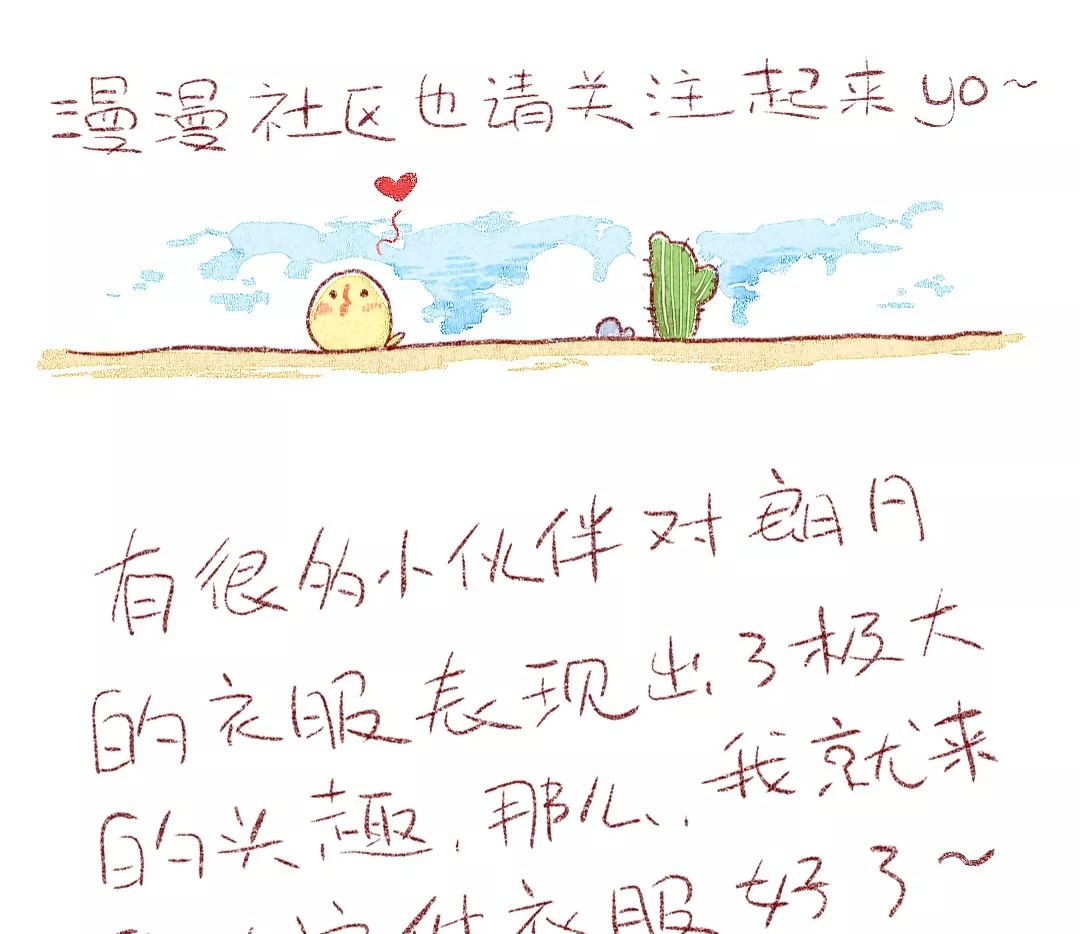 漫漫社区也请关注起来yo~
有很的小伙伴对朗月
的衣服表现出了极大
的兴趣,那么,我就来
这件衣服好了~